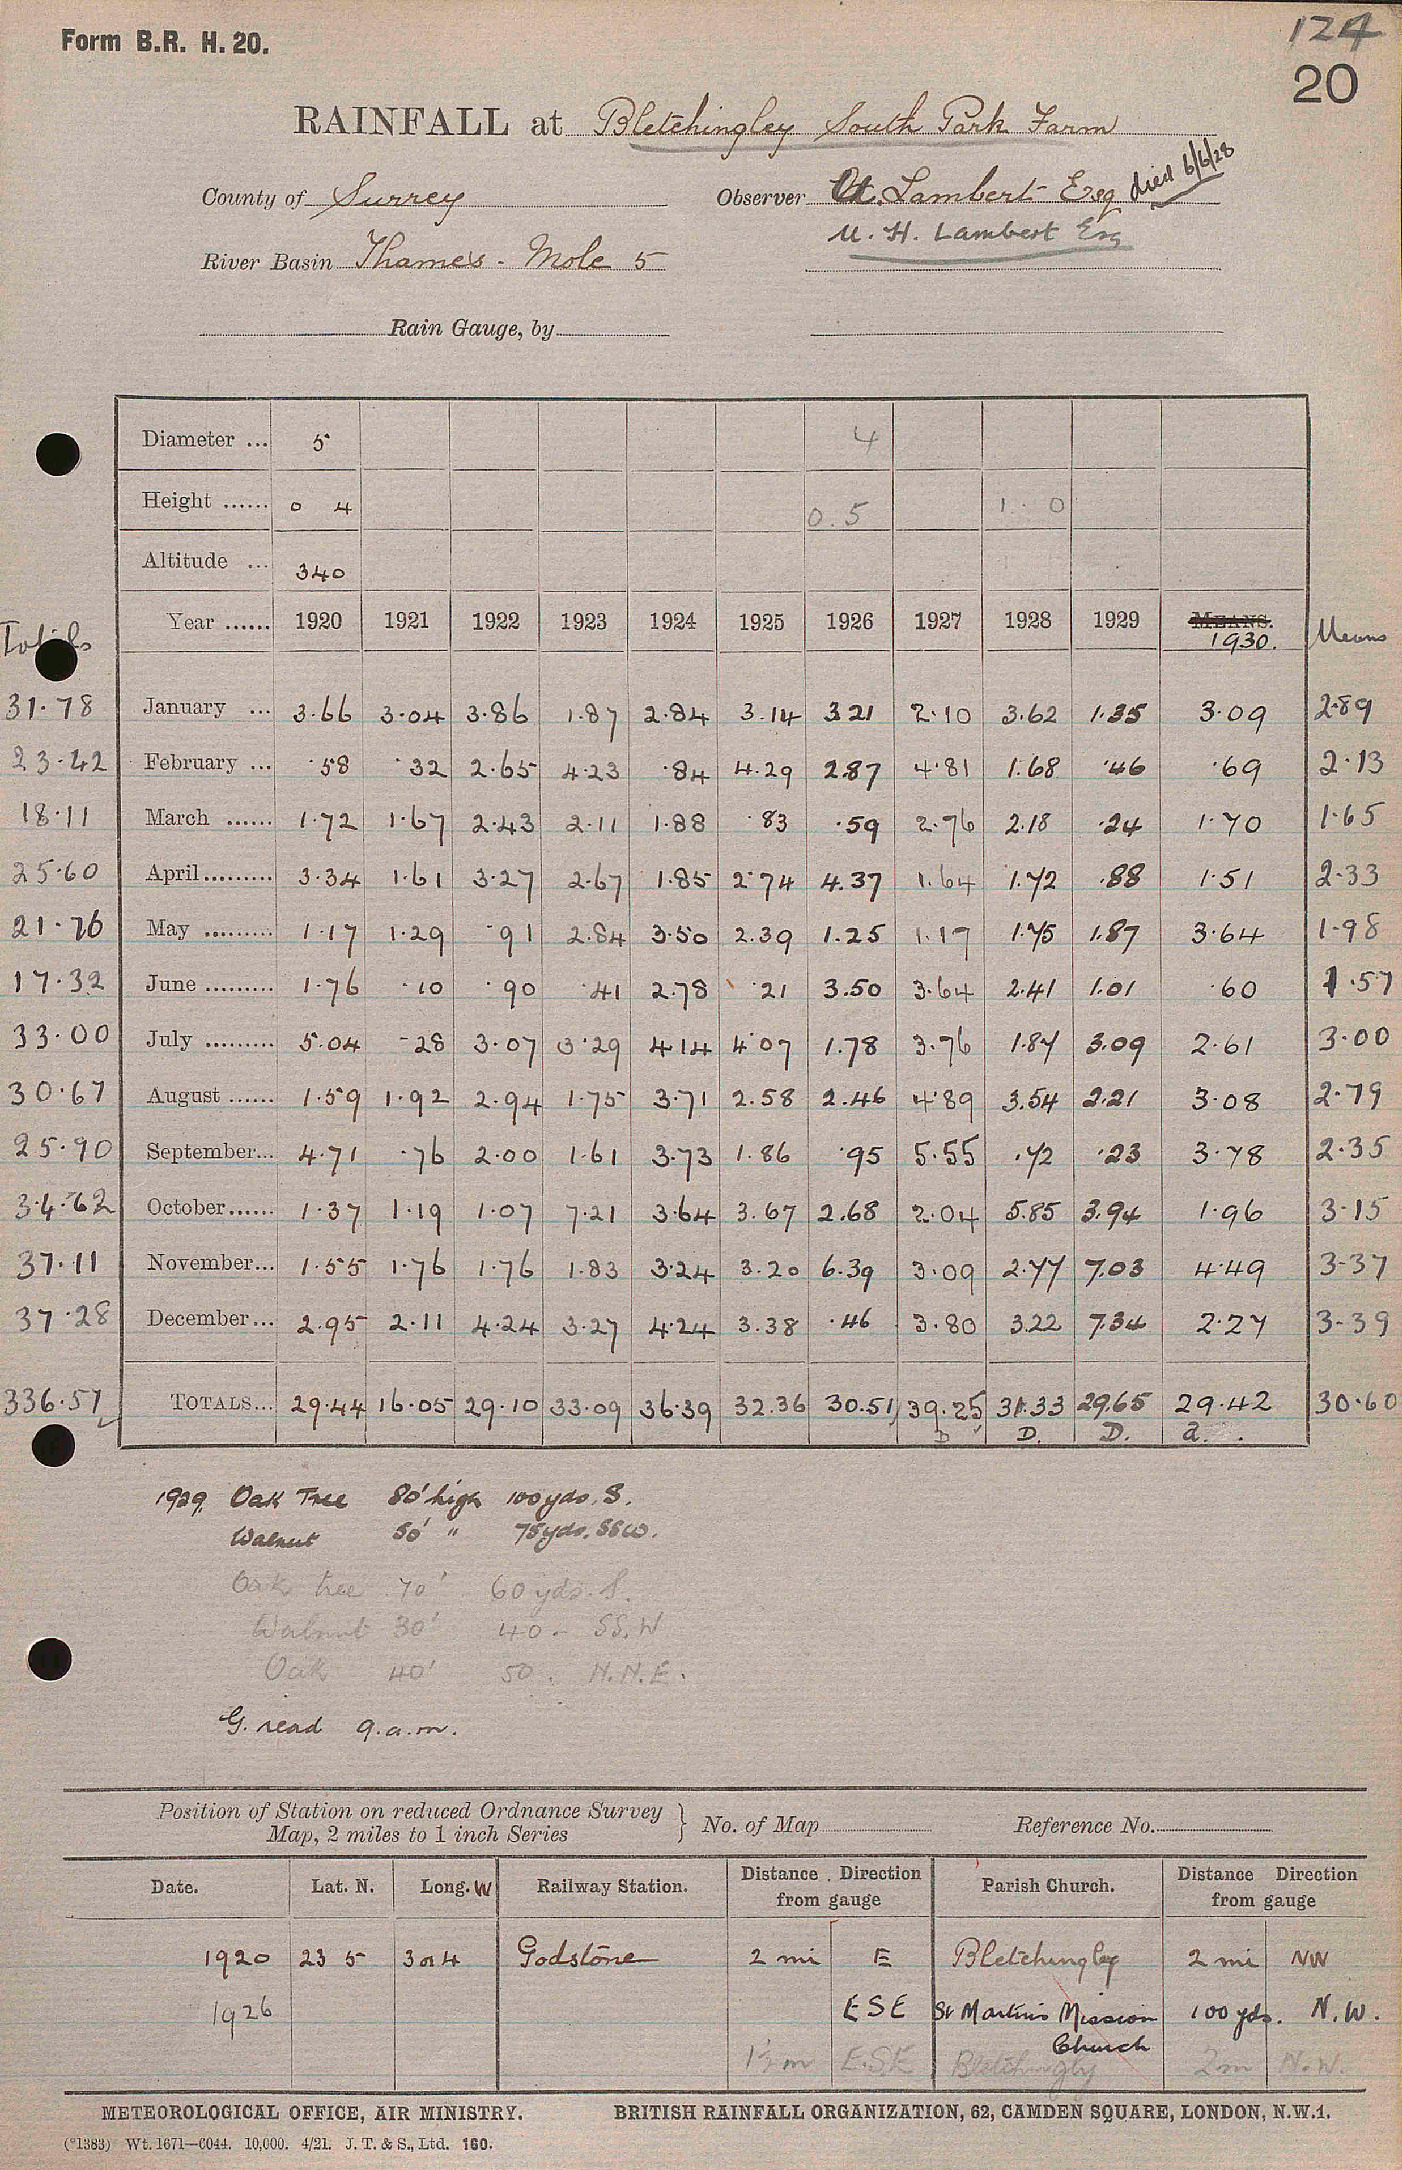 124
Form B.R. H. 20.
20
RAINFALL at Bletchingley South Park Farm
County of Surrey Observer Lambert Esq died 6/6/28
U. H. Lambert Esq
River Basin Thames - Mole 5
Rain Gauge, by
Diameter ... 5 4
Height ...... 0 4 0.5 1. 0
Altitude ... 340
Totals Year ...... 1920 1921 1922 1923 1924 1925 1926 1927 1928 1929 MEANS. 1930. Means
31.78 January ... 3.66 3.04 3.86 1.87 2.84 3.14 3.21 2.10 3.62 1.35 3.09 2.89
23.42 February ... .58 .32 2.65 4.23 .84 4.29 2.87 4.81 1.68 .46 .69 2.13
18.11 March ...... 1.72 1.67 2.43 2.11 1.88 .83 .59 2.76 2.18 .24 1.70 1.65
25.60 April ......... 3.34 1.61 3.27 2.67 1.85 2.74 4.37 1.64 1.72 .88 1.51 2.33
21.76 May ......... 1.17 1.29 .91 2.84 3.50 2.39 1.25 1.17 1.75 1.87 3.64 1.98
17.32 June ......... 1.76 .10 .90 .41 2.78 .21 3.50 3.64 2.41 1.01 .60 1.57
33.00 July ......... 5.04 .28 3.07 3.29 4.14 4.07 1.78 3.76 1.87 3.09 2.61 3.00
30.67 August ...... 1.59 1.92 2.94 1.75 3.71 2.58 2.46 4.89 3.54 2.21 3.08 2.79
25.90 September... 4.71 .76 2.00 1.61 3.73 1.86 .95 5.55 .72 .23 3.78 2.35
34.62 October...... 1.37 1.19 1.07 7.21 3.64 3.67 2.68 2.04 5.85 3.94 1.96 3.15
37.11 November... 1.55 1.76 1.76 1.83 3.24 3.20 6.39 3.09 2.77 7.03 4.49 3.37
37.28 December... 2.95 2.11 4.24 3.27 4.24 3.38 .46 3.80 3.22 7.34 2.27 3.39
336.57 TOTALS... 29.44 16.05 29.10 33.09 36.39 32.36 30.51 39.25 31.33 29.65 29.42 30.60
D D. D. a.
1929. Oak Tree 80' high 100 yds. S.
Walnut 50' " 75 yds. SSW.
Oak tree 70' 60 yds. S.
Walnut 30' 40 - SS.W
Oak 40' 50 . N.N.E.
G. read 9.a.m.
Position of Station on reduced Ordnance Survey
Map, 2 miles to 1 inch Series } No. of Map Reference No.
Date. Lat. N. Long. W Railway Station. Distance Direction from gauge Parish Church. Distance Direction from gauge
1920 23 5 3 or 4 Godstone 2 mi E Bletchingley 2 mi NW
1926 ESE St Martin's Mission Church 100 yds. N.W.
1½ m E.S.E Bletchingly 2m N.W.
METEOROLOGICAL OFFICE, AIR MINISTRY. BRITISH RAINFALL ORGANIZATION, 62, CAMDEN SQUARE, LONDON, N.W.1.
(*1383) Wt. 1671—6044. 10,000. 4/21. J. T. & S., Ltd. 160.